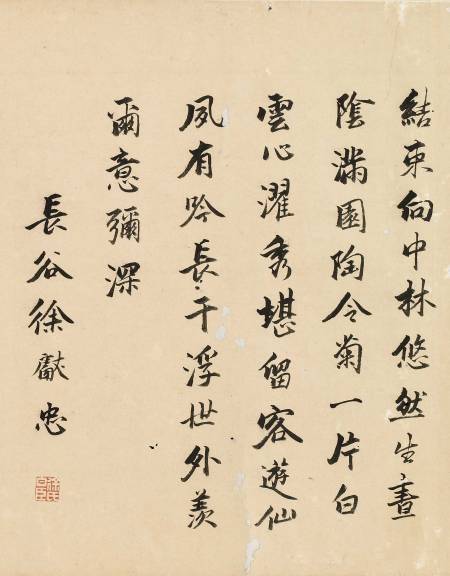 結束向中林悠然生晝
陰滿園陶令菊一片白
雲心濯秀堪留客遊仙
夙有吟長干浮世外羨
爾意彌深
長谷徐獻忠